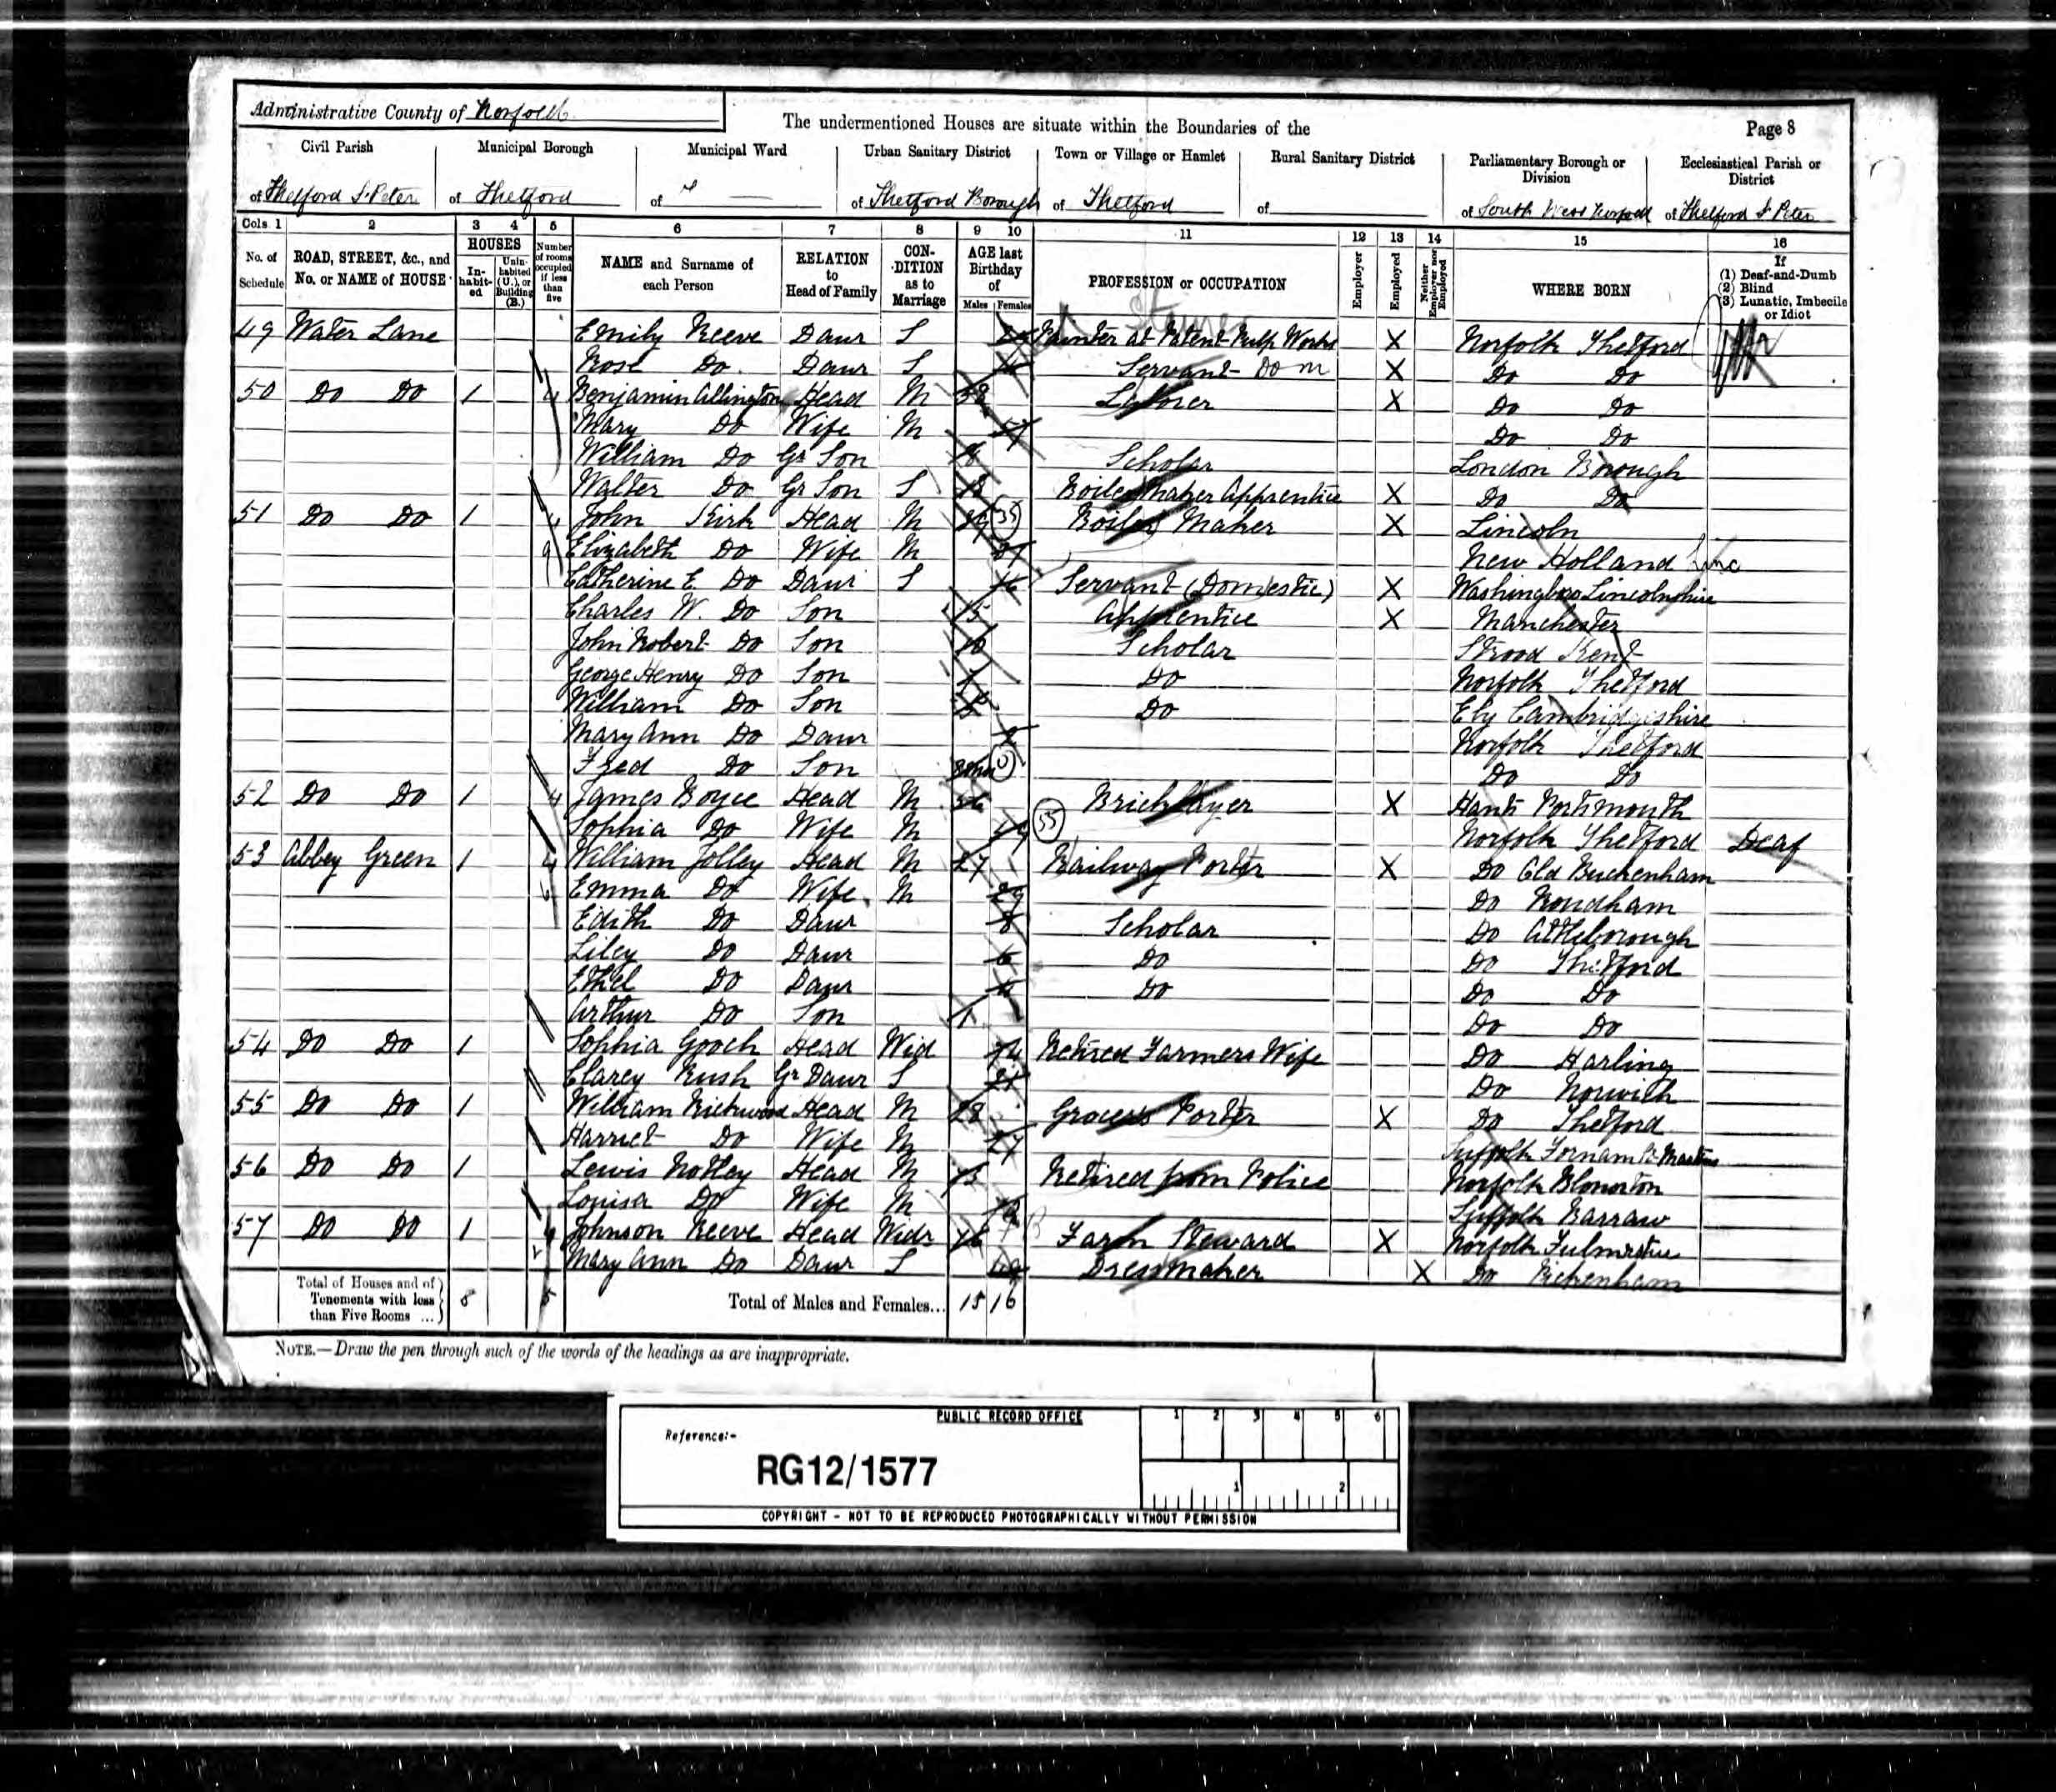 Administrative County of Norfolk
The undermentioned Houses are situate within the Boundaries of the
Page 8
Civil Parish Municipal Borough Municipal Ward Urban Sanitary District Town or Village or Hamlet Rural Sanitary District Parliamentary Borough or Division Ecclesiastical Parish or District
of Thetford St Peter of Thetford of of Thetford Borough of Thetford of of South West Norfolk of Thetford St Peter
Cols 1 2 3 4 5 6 7 8 9 10 11 12 13 14 15 16
No. of Schedule ROAD, STREET, &c., and No. or NAME of HOUSE HOUSES In-habit-ed Unin-habited (U.), or Building (B.) Number of rooms occupied if less than five NAME and Surname of each Person RELATION to Head of Family CON-DITION as to Marriage AGE last Birthday of Males Females PROFESSION or OCCUPATION Employer Employed Neither Employer nor Employed WHERE BORN If (1) Deaf-and-Dumb (2) Blind (3) Lunatic, Imbecile or Idiot
49 Water Lane Emily Reeve Daur S Painter at Patent Pulp Works X Norfolk Thetford
Rose Do. Daur S Servant Dom X Do Do
50 Do Do 1 4 Benjamin Allington Head M 58 Laborer X Do Do
Mary Do Wife M 57 Do Do
William Do Gr Son 8 Scholar London Borough
Walter Do Gr Son S 18 Boiler Maker Apprentice X Do Do
51 Do Do 1 4 John Kirk Head M 39 (35) Boiler Maker X Lincoln
9 Elizabeth Do Wife M 37 New Holland Linc
Catherine E. Do Daur S 16 Servant (Domestic) X Washingboro Lincolnshire
Charles W. Do Son 15 Apprentice X Manchester
John Robert Do Son 10 Scholar Strood Kent
George Henry Do Son 7 Do Norfolk Thetford
William Do Son Do Ely Cambridgeshire
Mary Ann Do Daur 2 Norfolk Thetford
Fred Do Son (0) Do Do
52 Do Do 1 4 James Boyce Head M 56 Bricklayer X Hants Portsmouth
Sophia Do Wife M 59 (55) Norfolk Thetford Deaf
53 Abbey Green 1 4 William Jolley Head M 27 Railway Porter X Do Old Buckenham
6 Emma Do Wife M 29 Do Roudham
Edith Do Daur 8 Scholar Do Attleborough
Liley Do Daur 6 Do Do Thetford
Ethel Do Daur 4 Do Do Do
Arthur Do Son 1 Do Do
54 Do Do 1 Sophia Gooch Head Wid 74 Retired Farmers Wife Do Harling
Clarey Rush Gr Daur S 21 Do Norwich
55 Do Do 1 William Rickwood Head M 28 Grocers Porter X Do Thetford
Harriet Do Wife M 27 Suffolk Fornam St Martins
56 Do Do 1 Lewis Notley Head M Retired from Police Norfolk Blonorton
Louisa Do Wife M Suffolk Barraw
57 Do Do 1 4 Johnson Reeve Head Widr 76 Farm Steward X Norfolk Fulmerstun
Mary Ann Do Daur S Dressmaker X Do Rickenham
Total of Houses and of Tenements with less than Five Rooms ... 8 5 Total of Males and Females... 15 16
NOTE.—Draw the pen through such of the words of the headings as are inappropriate.
PUBLIC RECORD OFFICE
1 2 3 4 5 6
Reference:-
RG12/1577
1 2
COPYRIGHT - NOT TO BE REPRODUCED PHOTOGRAPHICALLY WITHOUT PERMISSION